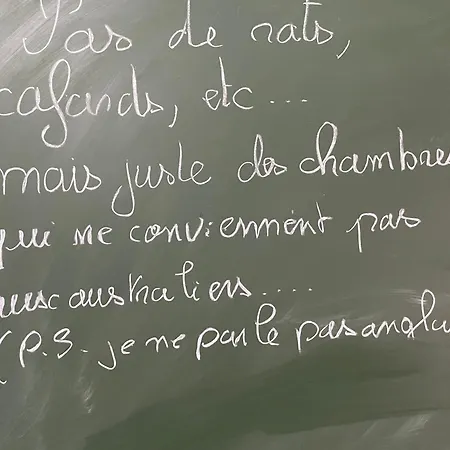 Pas de rats,
cafards, etc...
mais juste des chambres
qui ne conviennent pas
aux australiens....
(P.S. je ne parle pas angla